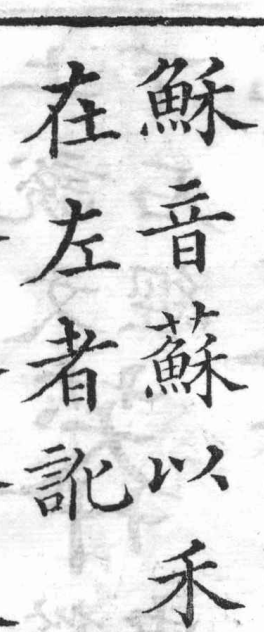 穌音蘇以禾
在左者訛